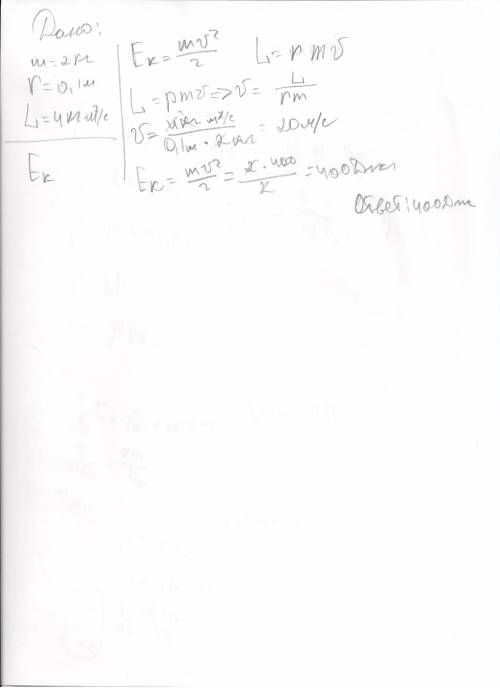 Дано:
m=2кг
r=0,1м
L=4кг м²/с
Eк
Eк = mv²/2  L=rmv
L=rmv=>v= L/rm
v= 4кг м²/с / 0,1м · 2кг = 20м/с
Eк= mv²/2 = 2·400/2 =400Дж
Ответ:400Дж